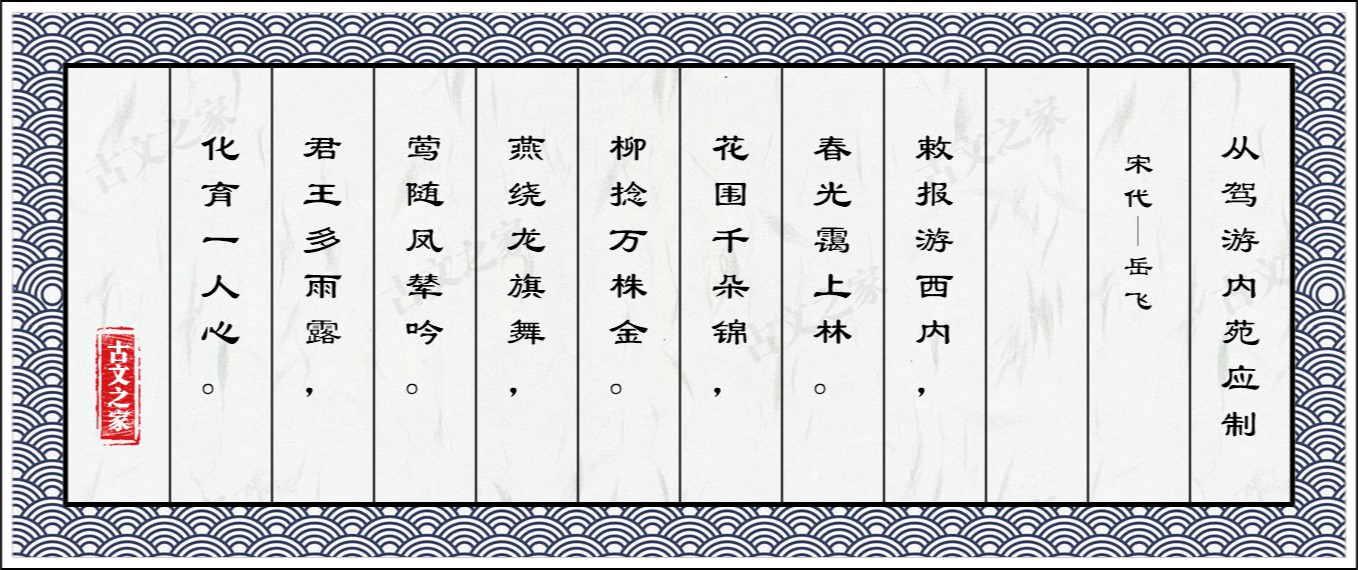 从驾游内苑应制
宋代—岳飞
敕报游西内，
春光霭上林。
花围千朵锦，
柳捻万株金。
燕绕龙旗舞，
莺随凤辇吟。
君王多雨露，
化育一人心。
古文之家
古文之家
古文之家
古文之家
古文之家